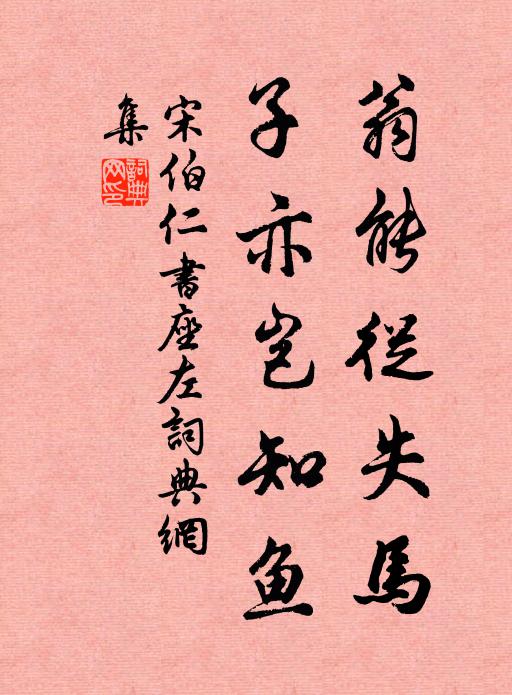 翁能從失馬
子亦岂知鱼
宋伯仁書座左詞典網
集
詞典网印